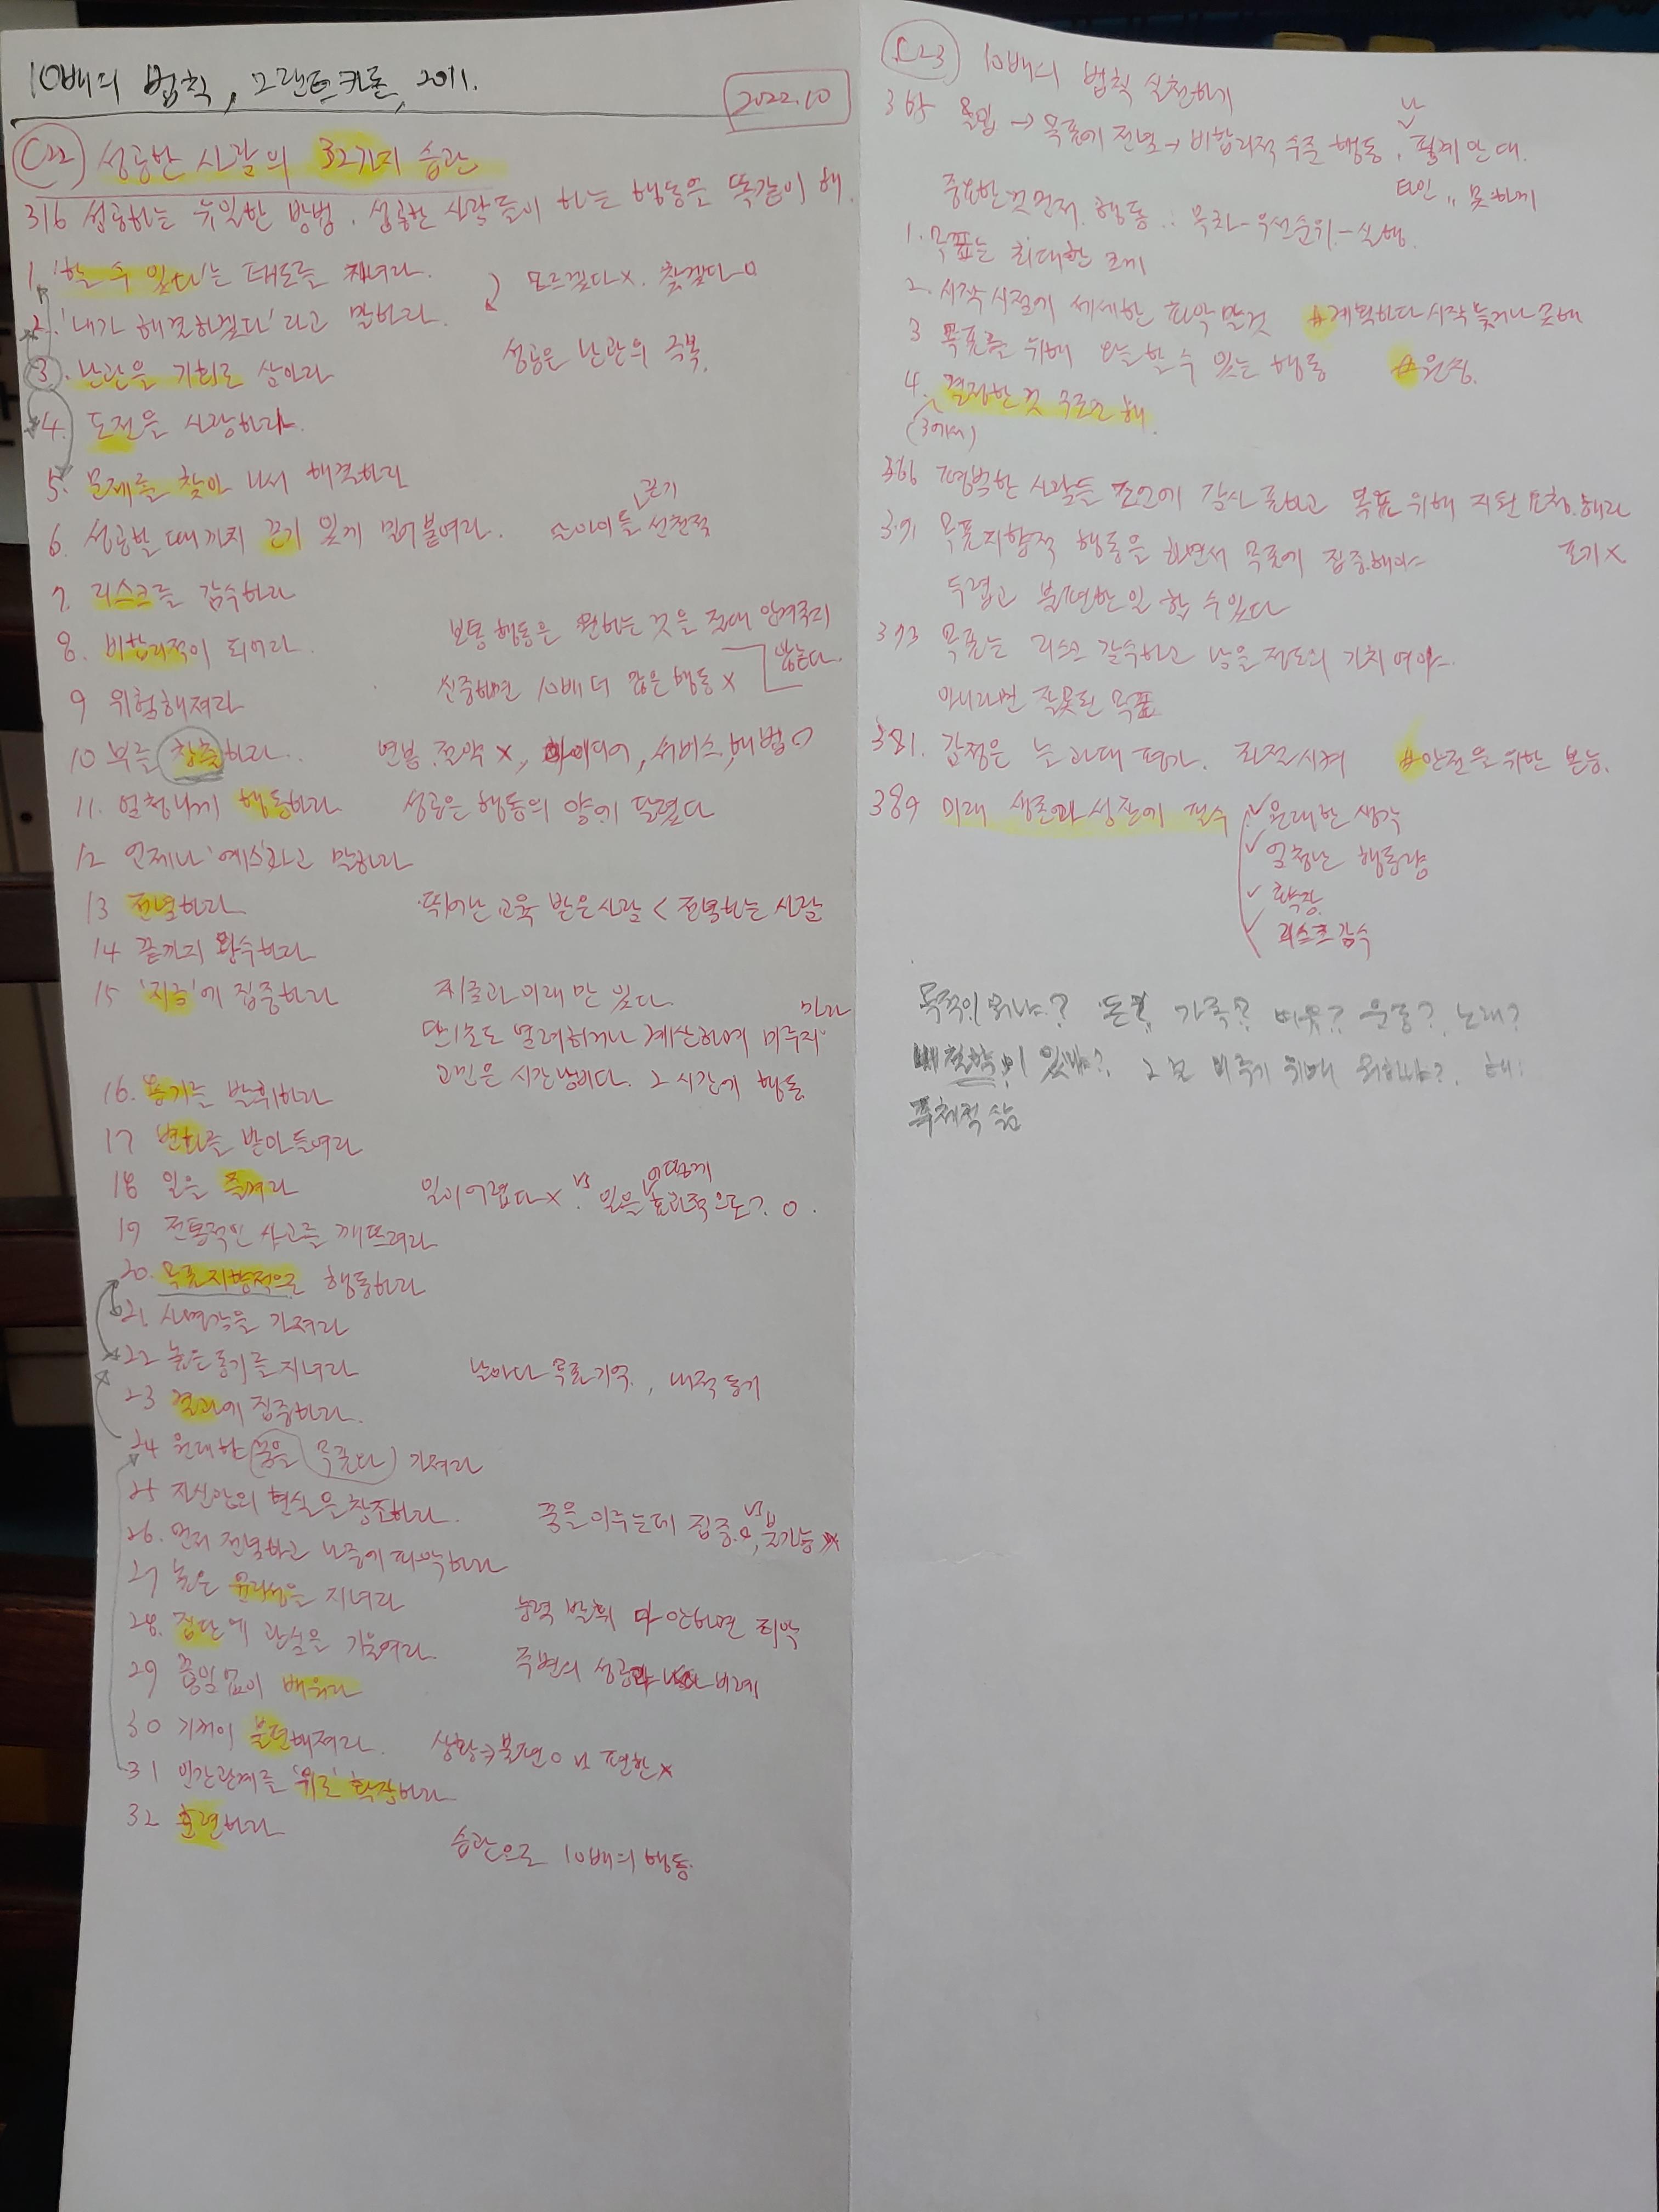 10배의 법칙, 그랜트 카돈, 2011.
2022.10
C22 성공한 사람의 32가지 습관
316 성공하는 유일한 방법. 성공한 사람들이 하는 행동을 똑같이 해.
1. '할 수 있다'는 태도를 지녀라.
2. '내가 해결하겠다'라고 말하라. 모르겠다x. 찾겠다o
3. 난관을 기회로 삼아라 성공은 난관의 극복.
4. 도전을 사랑하라.
5. 문제를 찾아 나서 해결하라
6. 성공할 때까지 끈기 있게 밀어붙여라. 끈기 선천적
7. 리스크를 감수하라
8. 비합리적이 되어라. 보통 행동은 원하는 것을 절대 안겨주지 않는다.
9 위험해져라 신중하면 10배 더 많은 행동 x
10 부를 창출하라. 연봉. 절약 x, 아이디어, 서비스, 해법 o
11. 엄청나게 행동하라 성공은 행동의 양에 달렸다
12 언제나 '예스'라고 말하라
13 전념하라 뛰어난 교육 받은 사람 < 전념하는 사람
14 끝까지 완수하라
15 '지금'에 집중하라 지금과 미래만 있다
단 1초도 염려하거나 계산하며 미루지 마라
16. 용기를 발휘하라 고민은 시간낭비다. 그 시간에 행동
17 변화를 받아들여라
18 일을 즐겨라 일이 어렵다 x. vs 일을 어떻게 효과적으로? o.
19 전통적인 사고를 깨뜨려라
20. 목표지향적으로 행동하라
21. 사명감을 가져라
22 높은 동기를 지녀라 날마다 목표 기억, 내적 동기
23 결과에 집중하라.
24 원대한 (꿈을 (목표다) 가져라
25 자신만의 현실을 창조하라. 꿈을 이루는데 집중.o, vs 불가능 x
26. 먼저 전념하고 나중에 파악하라
27 높은 윤리성을 지녀라 능력 발휘 다 안하면 죄악
28. 집단에 관심을 기울여라. 주변의 성공과 비례
29 끊임없이 배워라
30 기꺼이 불편해져라. 상황 불편 o vs 편한 x
31 인간관계를 '위로' 확장하라
32 훈련하라 습관으로 10배의 행동.
C23 10배의 법칙 실천하기
365 몰입 → 목표에 전념 → 비합리적 수준 행동, 나 핑계 안 대.
타인 〃 못 하게
중요한 것 먼저. 행동 : 목차-우선순위-실행.
1. 목표는 최대한 크게
2. 시작 시점에 세세한 파악 말것 #계획하다 시작 늦거나 못해
3 목표를 위해 오늘 할 수 있는 행동
4. 결정한 것 무조건 해.
(3에서)
366 평범한 사람들 조언에 감사 표하고 목표 위해 지원 요청.해라
371 목표지향적 행동을 하면서 목표에 집중해야 포기 x
두렵고 불편한 일 할 수 있다
373 목표는 리스크 감수하고 남을 정도의 가치여야.
아니라면 잘못된 목표
381. 감정은 늘 과대 평가. 좌절시켜 #안전을 위한 본능.
389 미래 생존과 성장에 필수 ✓ 원대한 생각
✓ 엄청난 행동량
✓ 확장
✓ 리스크 감수
목적이 뭐냐? 돈?, 가족? 이웃? 운동? 노래?
내 철학이 있냐? 그걸 이루기 위해 뭐하냐?. 해!
주체적 삶